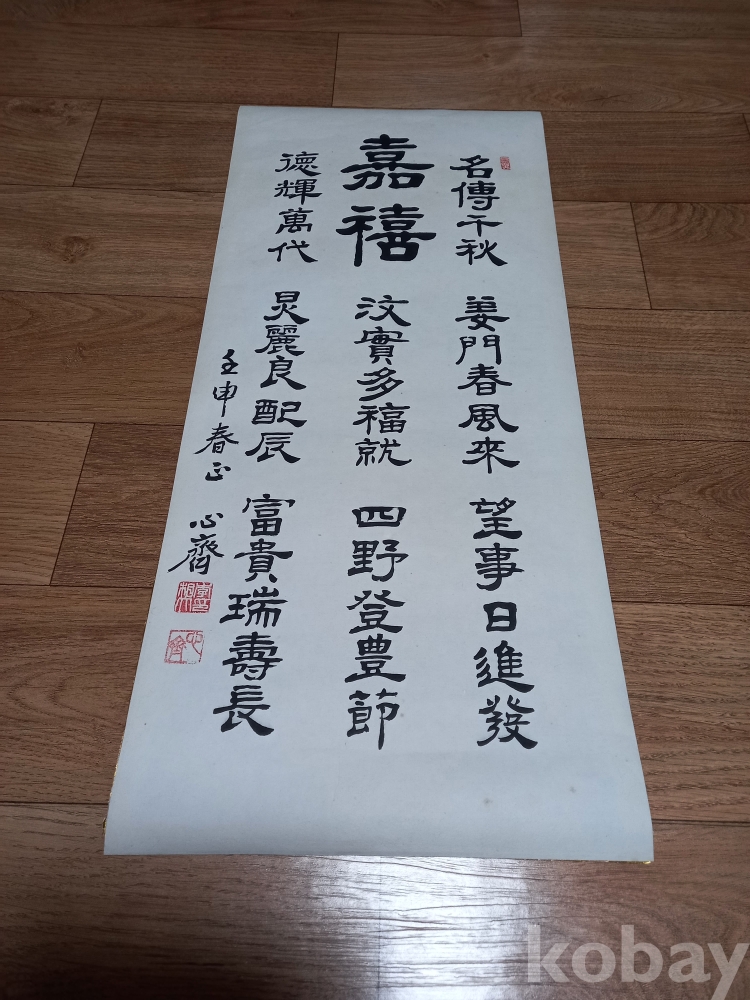 名傳千秋 姜門春風來 望事日進發
嘉禧 汶實多福就 四野登豊節
德輝萬代 炅麗良配辰 富貴瑞壽長
壬申春正 心齊
kobay